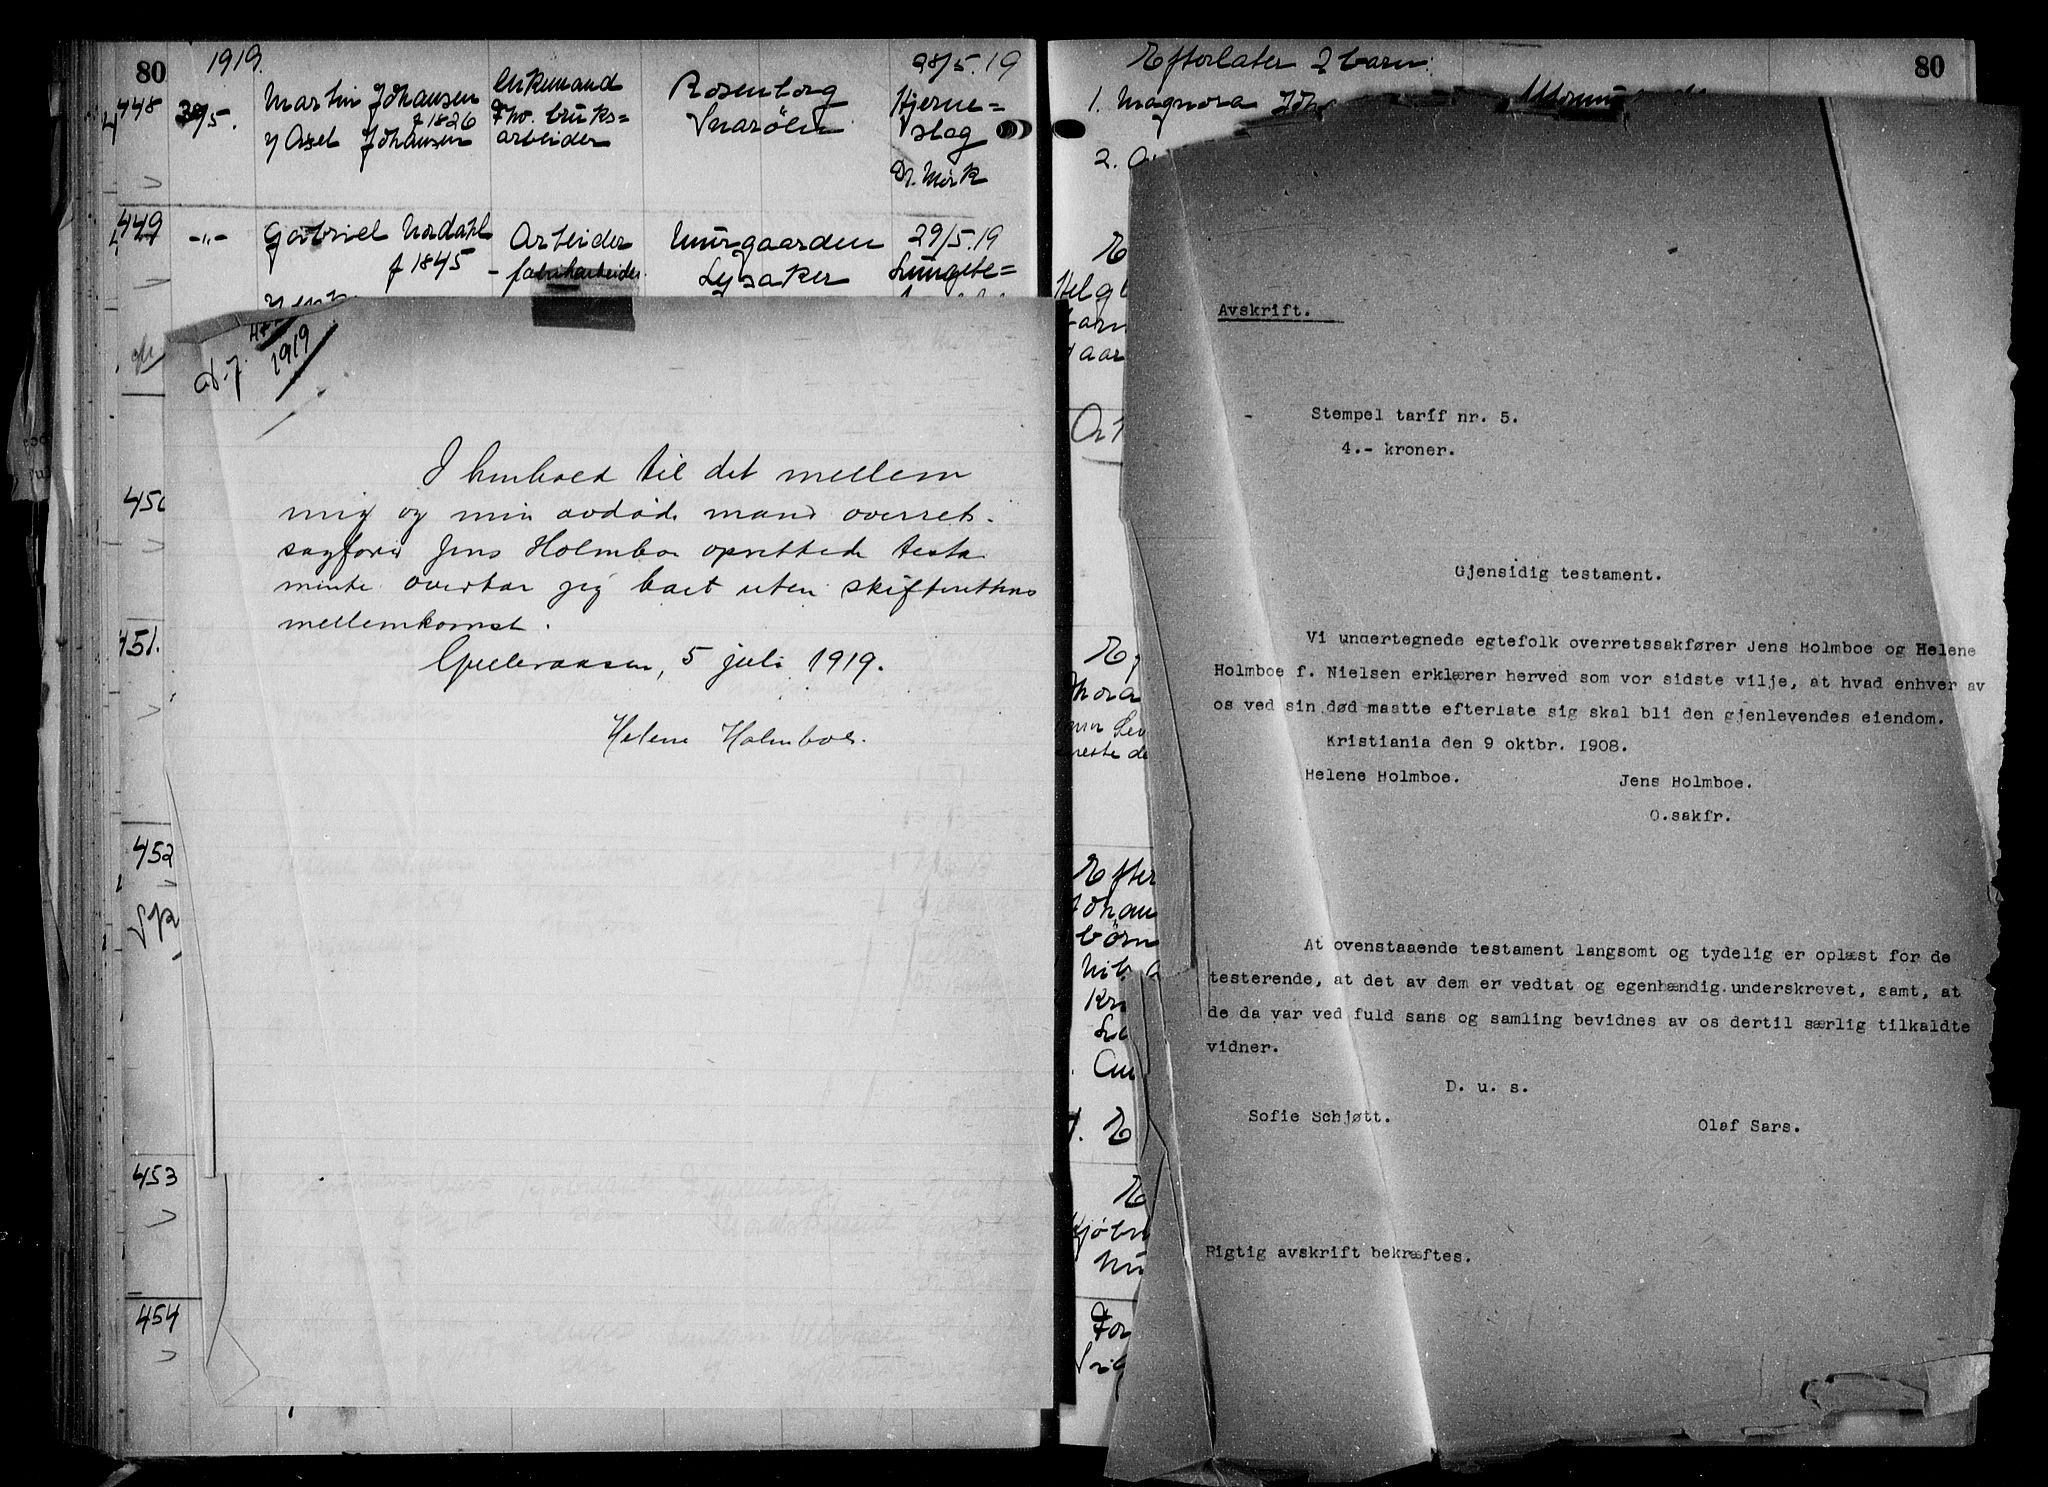 80
1919.
28/5.19
448
Martin Johansen
f 1826
Enkemand
Fhv. bruks=
arbeider
Rosenborg
Snarøen
Hjerne=
slag
Dr. Mørk
v/ Axel Johansen
449
-"-
Gabriel Nordahl
f 1845
Arbeider
- fabrikarbeider
Murgaarden
Lysaker
29/5.19
Lungebe=
450
451.
452
453
454
1919
I henhold til det mellem
mig og min avdøde mand overret-
sagfører Jens Holmboe oprettede testa
mente overtar jeg boet uten skifterettens
mellemkomst.
5 juli 1919.
Helene Holmboe.
Efterlater 2 barn:
80
1. Magnora
2.
Avskrift.
Stempel tariff nr. 5.
4.- kroner.
Gjensidig testament.
Vi undertegnede egtefolk overretssakfører Jens Holmboe og Helene
Holmboe f. Nielsen erklærer herved som vor sidste vilje, at hvad enhver av
os ved sin død maatte efterlate sig skal bli den gjenlevendes eiendom.
Kristiania den 9 oktbr. 1908.
Helene Holmboe. Jens Holmboe.
O.sakfr.
At ovenstaaende testament langsomt og tydelig er oplæst for de
testerende, at det av dem er vedtat og egenhændig underskrevet, samt, at
de da var ved fuld sans og samling bevidnes av os dertil særlig tilkaldte
vidner.
D. u. s.
Sofie Schjøtt. Olaf Sars.
Rigtig avskrift bekræftes.